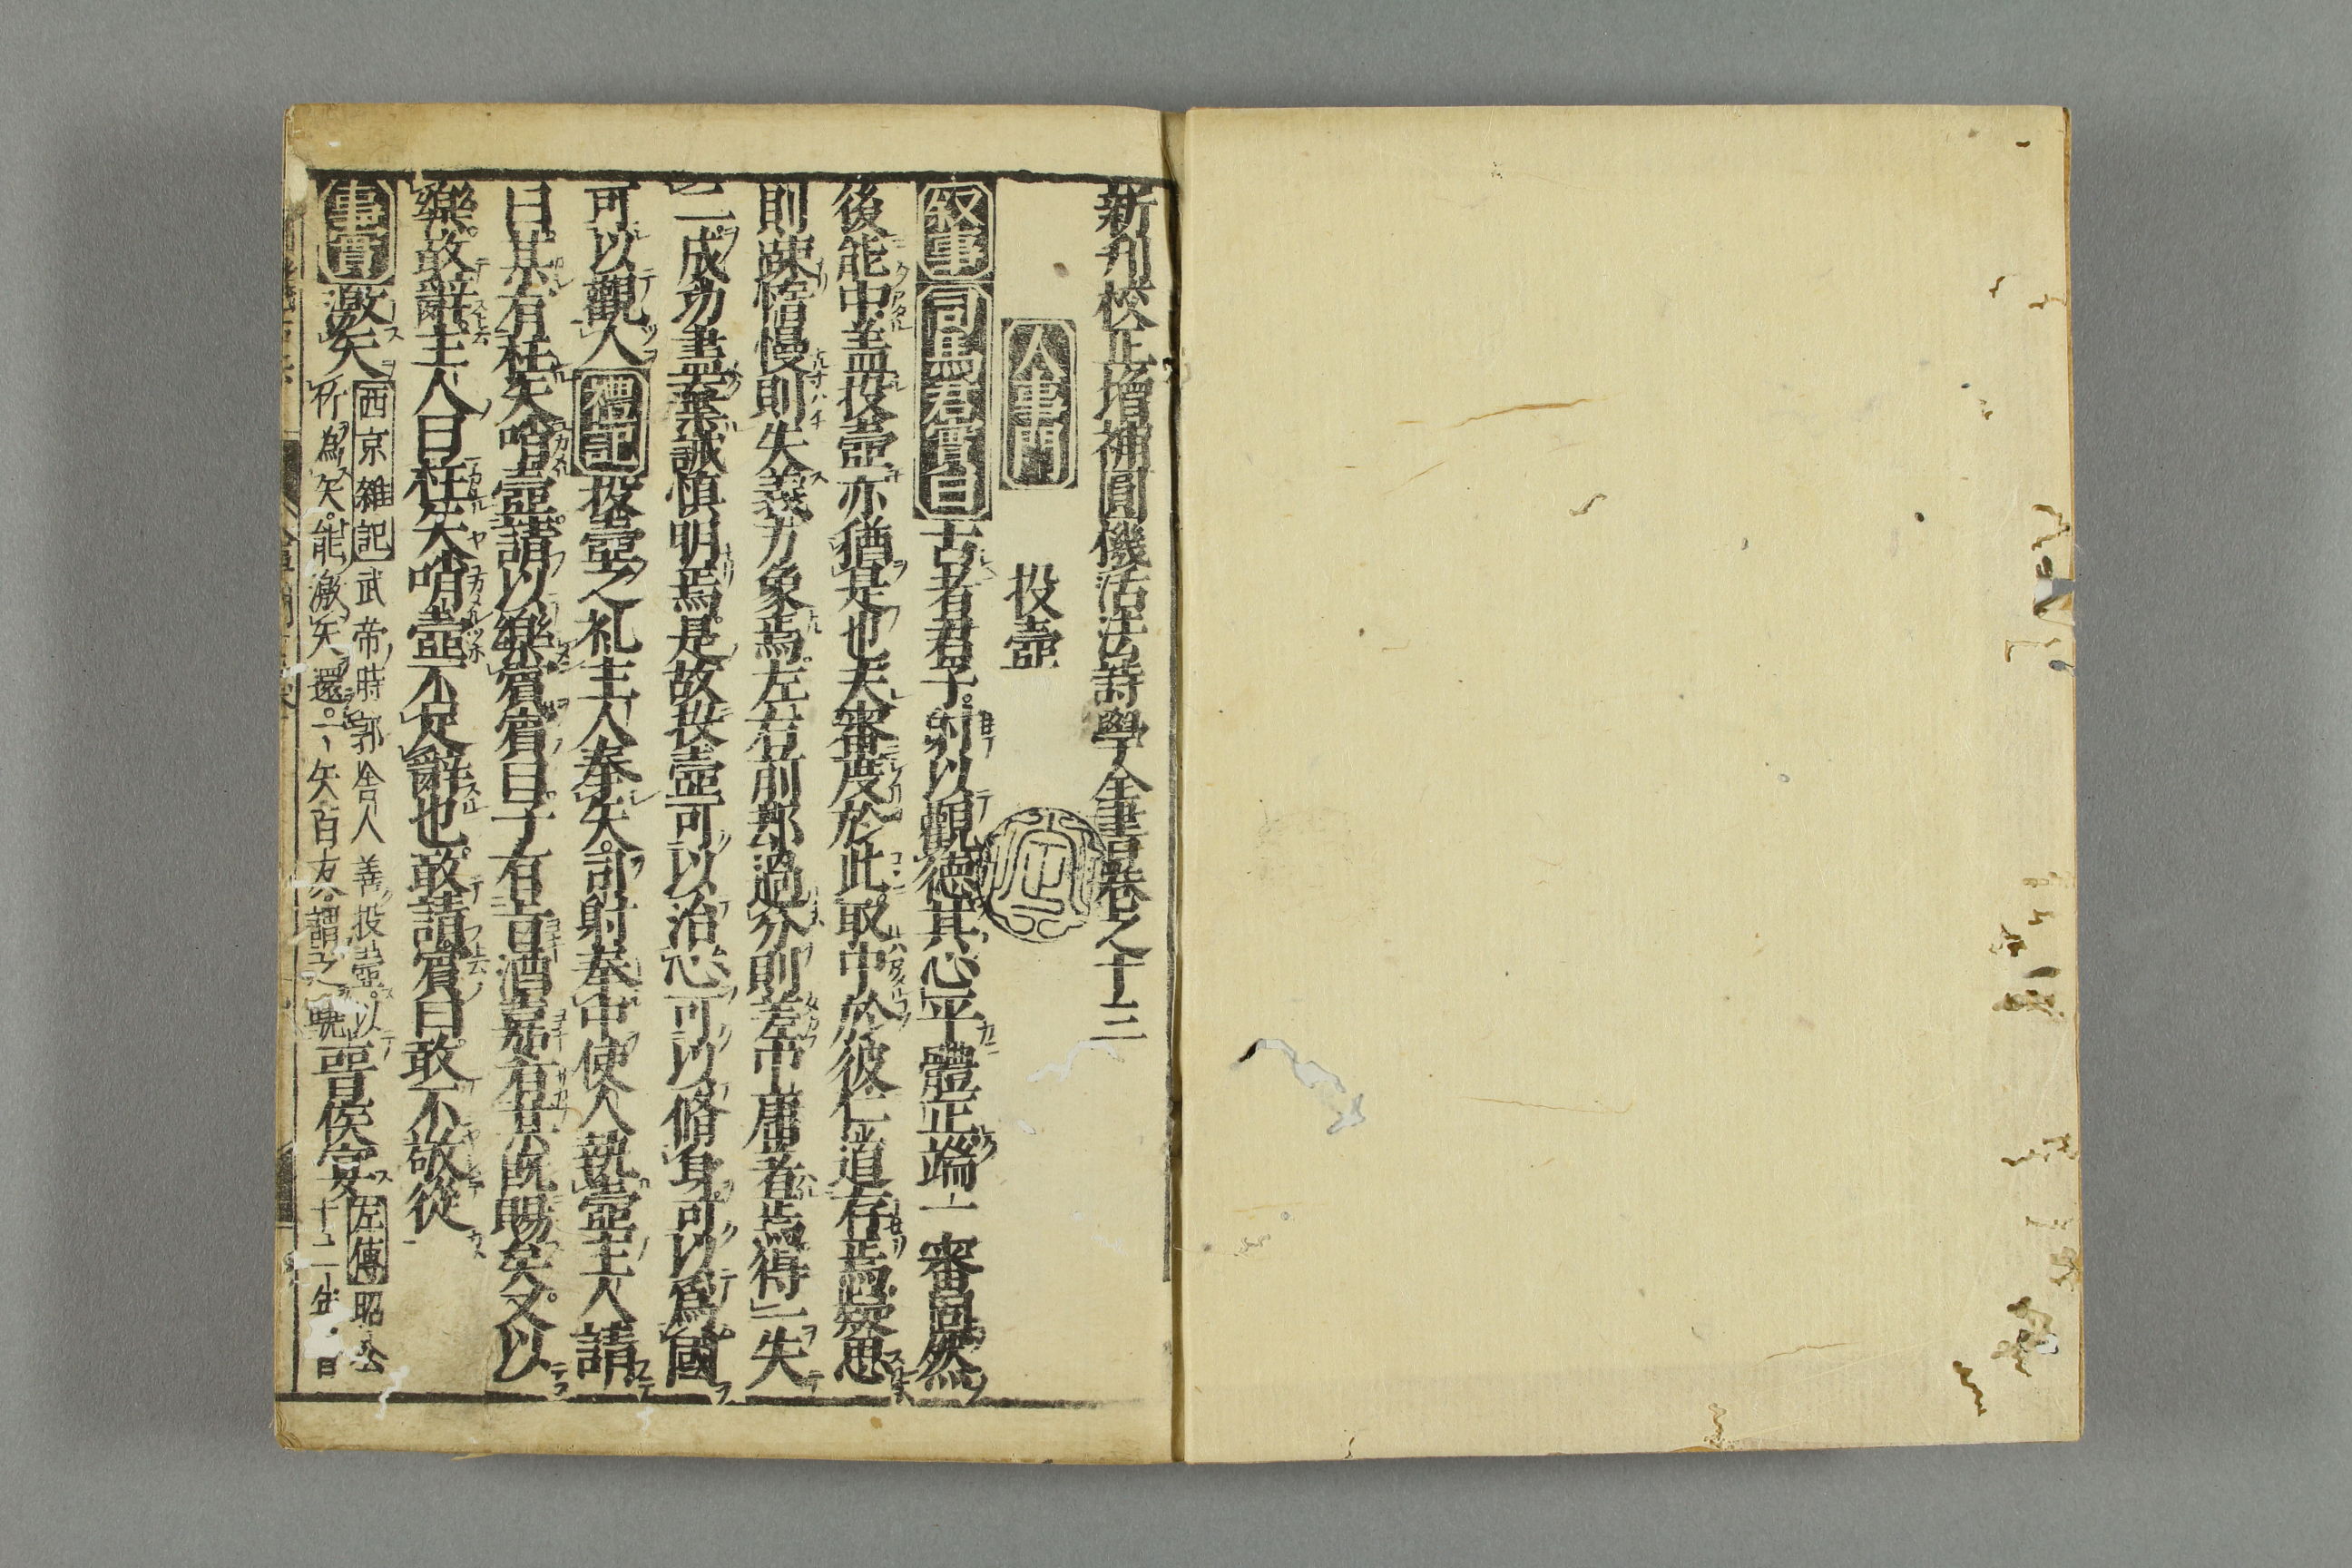 新刊校正增補圓機活法詩學全書卷之十三
人事門 投壺
叙事 司馬君實曰 古者君子射以觀德其心平體正端一審固然
後能中盖投壺亦猶是也夫審度於此取中於彼仁道存焉疑思
則疎惰慢則失義方象焉左右前却過分則差中庸著焉得一失
二成功盡棄誠愼明焉是故投壺可以治心可以脩身可以爲國
可以觀人 禮記 投壺之礼主人奉矢司射奉中使人執壺主人請
曰某有枉矢哨壺請以樂賓賓曰子有旨酒嘉肴某既賜矣又以
樂敢辭主人曰枉矢哨壺不足辭也敢請賓曰敢不敬從
事實 激矢 西京雜記 武帝時郭舍人善投壺以
竹為矢能激矢還一矢百友謂之驍 晋侯宴 左傳 昭公
十二年